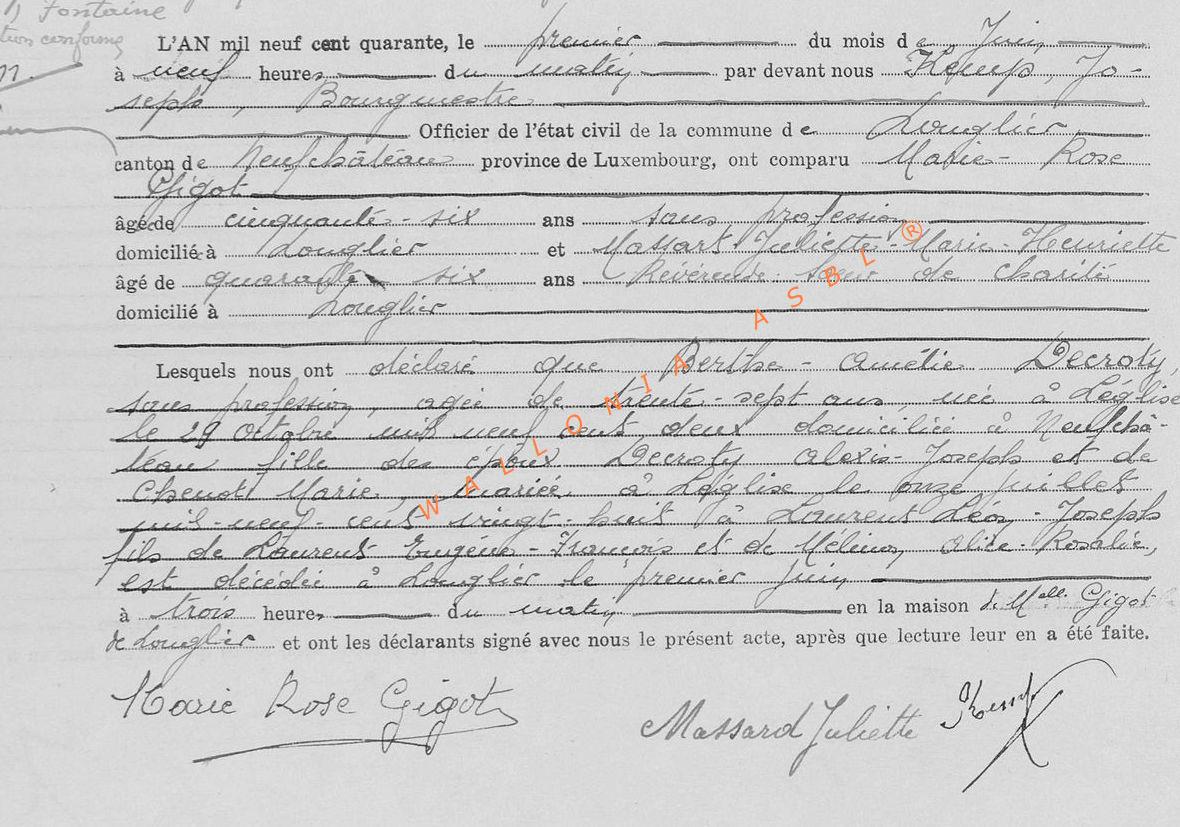 Fontaine
conforme
L'AN mil neuf cent quarante, le premier du mois de Juin
à neuf heures du matin par devant nous Kemp, Jo-
seph, Bourgmestre
Officier de l'état civil de la commune de Longlier
canton de Neufchâteau province de Luxembourg, ont comparu Marie-Rose
Gigot
âgé de cinquante-six ans sans profession
domicilié à Longlier et Massart Juliette-Marie-Henriette
âgé de quarante six ans Révérende Sœur de charité
domicilié à Longlier
Lesquels nous ont déclaré que Berthe-Amélie Decroty,
sans profession, agée de trente-sept ans, née à Léglise
le 29 Octobre mil neuf cent deux domiciliée à Neufchâ-
teau fille des époux Decroty Alexis-Joseph et de
Chenot Marie, mariée à Léglise le onze juillet
mil-neuf-cent vingt-huit à Laurent Léon-Joseph
fils de Laurent Eugène-François et de Mélinon, Alice-Rosalie,
est décédée à Longlier le premier juin
à trois heures du matin en la maison de Melle Gigot
de Longlier et ont les déclarants signé avec nous le présent acte, après que lecture leur en a été faite.
Marie Rose Gigot
Massard Juliette
Kemp
WALLONIA ASBL ®